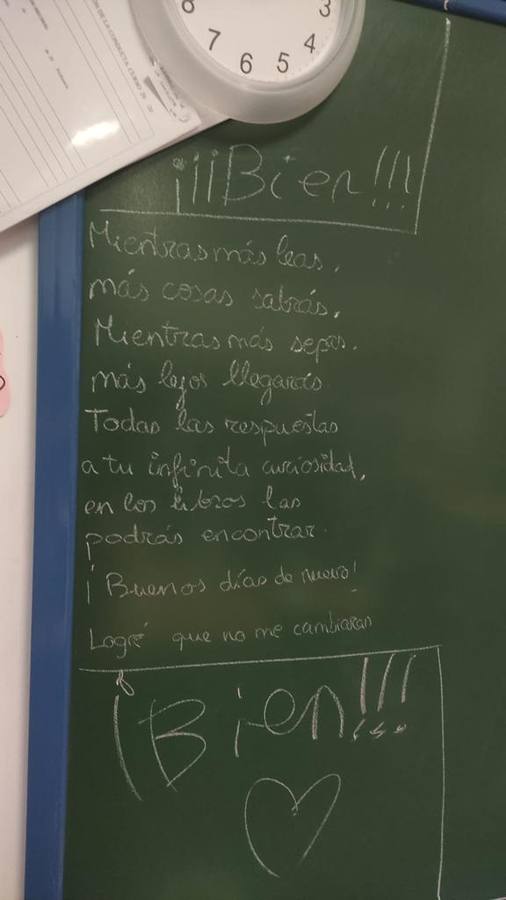 8 7 6 5 4 3
¡¡¡Bien!!!
Mientras más leas,
más cosas sabrás.
Mientras más sepas.
más lejos llegarás
Todas las respuestas
a tu infinita curiosidad,
en los libros las
podrás encontrar.
¡Buenos días de nuevo!
Logré que no me cambiaran
¡Bien!!!